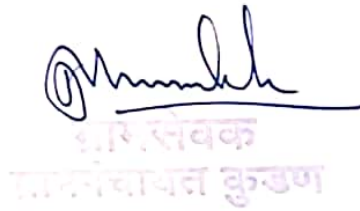 ग्रामसेवक
ग्रामपंचायत कुडण